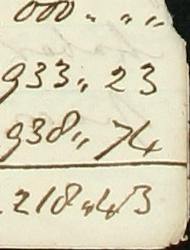 000 „ „ „
933 „ 23
938 „ 74
218 „ 43